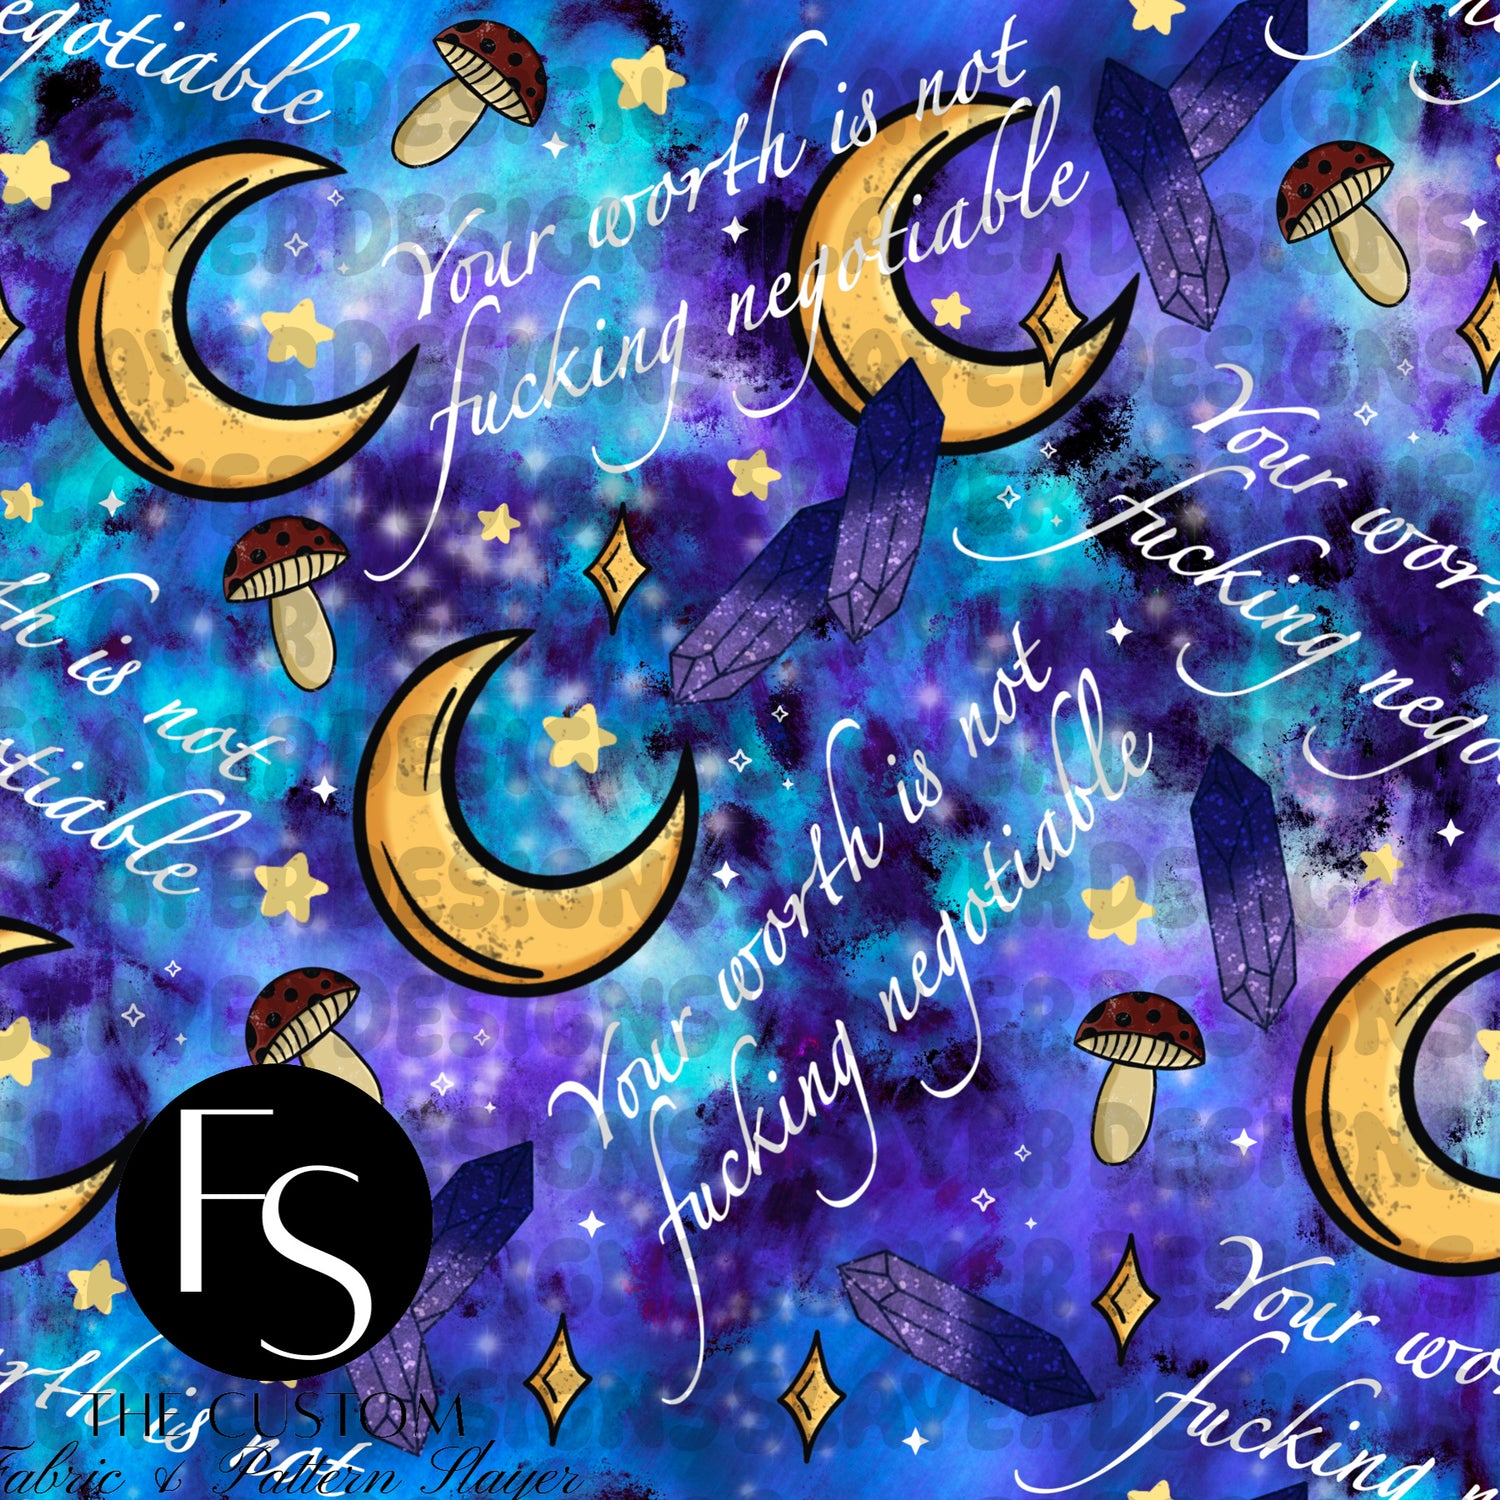 egotiable
Your worth is not
fucking negotiable
Your wort
fucking nego
th is not
otiable
Your worth is not
fucking negotiable
Your wo
fucking n
rth is not
FS
THE CUSTOM
Fabric & Pattern Slayer
AYERDESIGNS